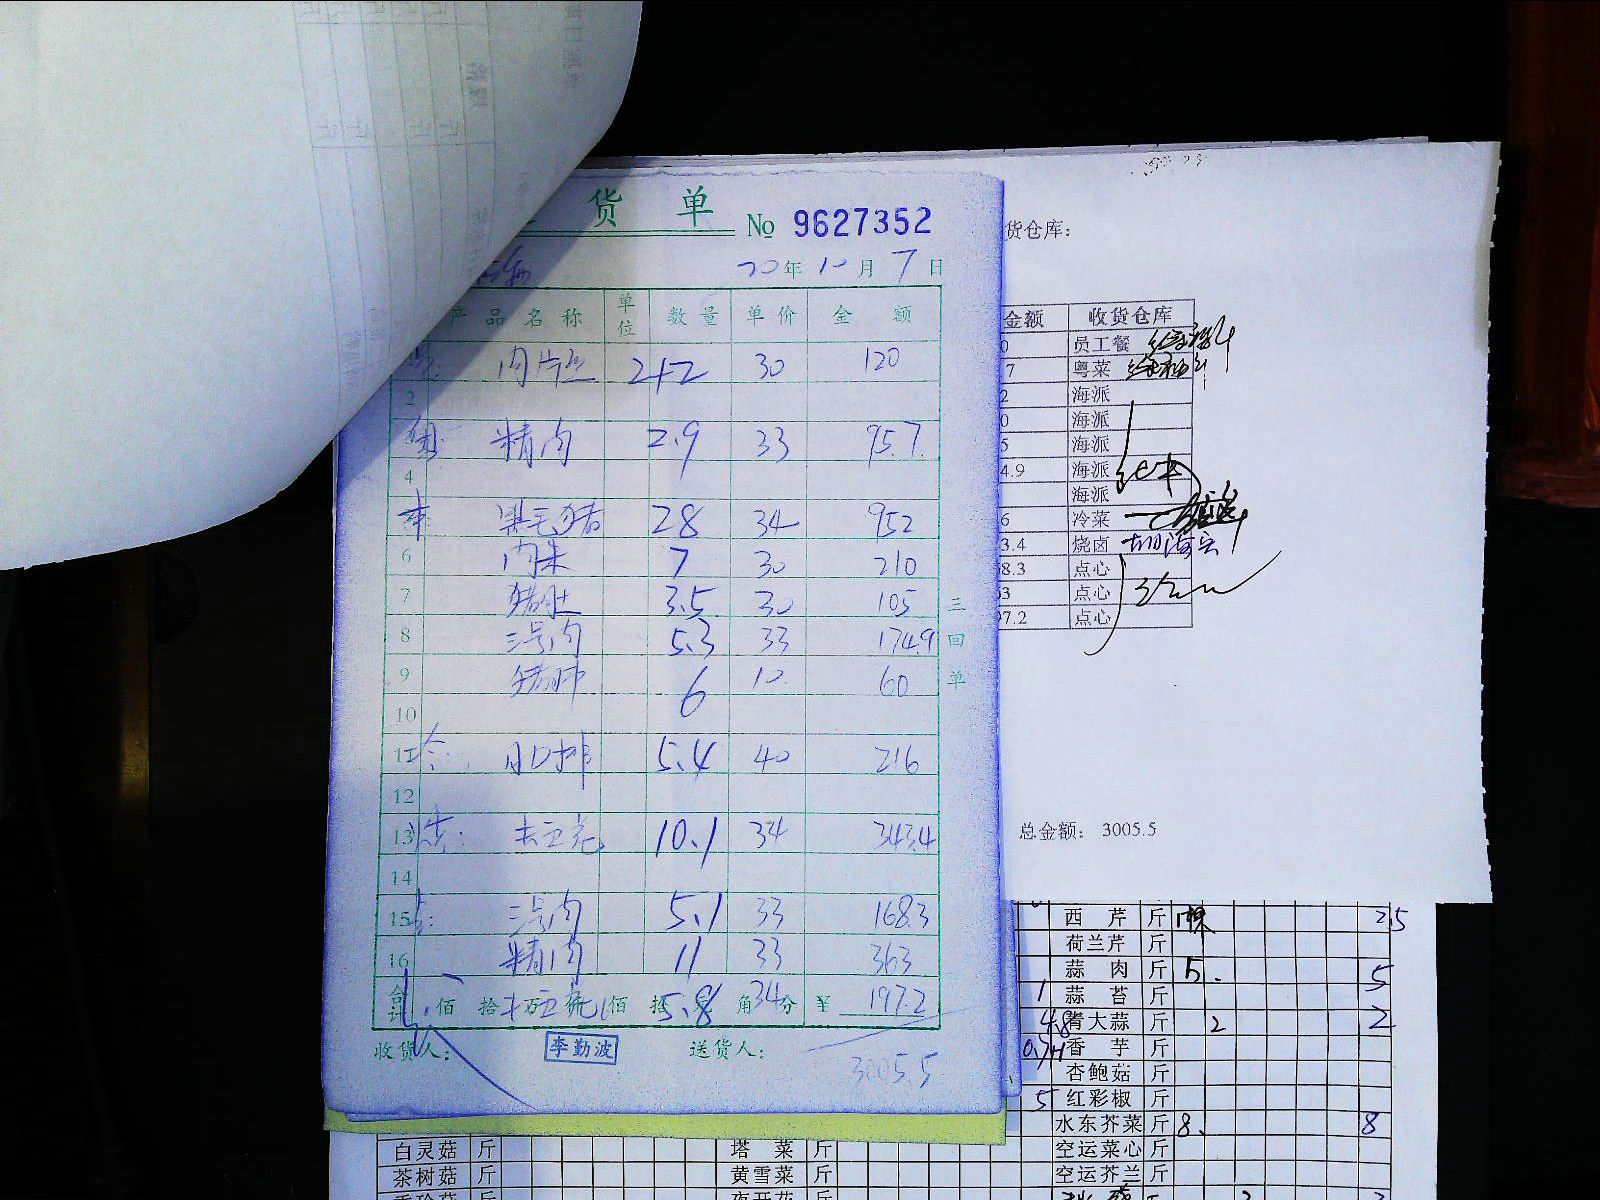 货 单 No 9627352
20年10月7日
产品名称 单位 数量 单价 金额
肉片丝 2+2 30 120
2
精肉 2.9 33 95.7
4
黑毛猪 28 34 952
6 肉末 7 30 210
7 猪肚 3.5 30 105
8 三号肉 5.3 33 174.9
9 猪肺 6 10 60
10
11 排 5.4 40 216
12
13 烧: 10.1 34 343.4
14
15 三号肉 5.1 33 168.3
16 精肉 11 33 363
合计 佰 拾 万 仟 佰 拾 5.8 角 34 分 ¥ 197.2
收货人: 李勤波 送货人:
3005.5
三回单
货仓库:
金额 收货仓库
0 员工餐
7 粤菜
2 海派
0 海派
5 海派
4.9 海派
海派
6 冷菜
3.4 烧卤
8.3 点心
3 点心
7.2 点心
总金额: 3005.5
西芹 斤 2.5
荷兰芹 斤
蒜肉 斤 5. 5
1 蒜苔 斤
4.8 青大蒜 斤 2 2
香芋 斤
杏鲍菇 斤
5 红彩椒 斤
水东芥菜 斤 8. 8
白灵菇 斤 塔菜 斤 空运菜心 斤
茶树菇 斤 黄雪菜 斤 空运芥兰 斤